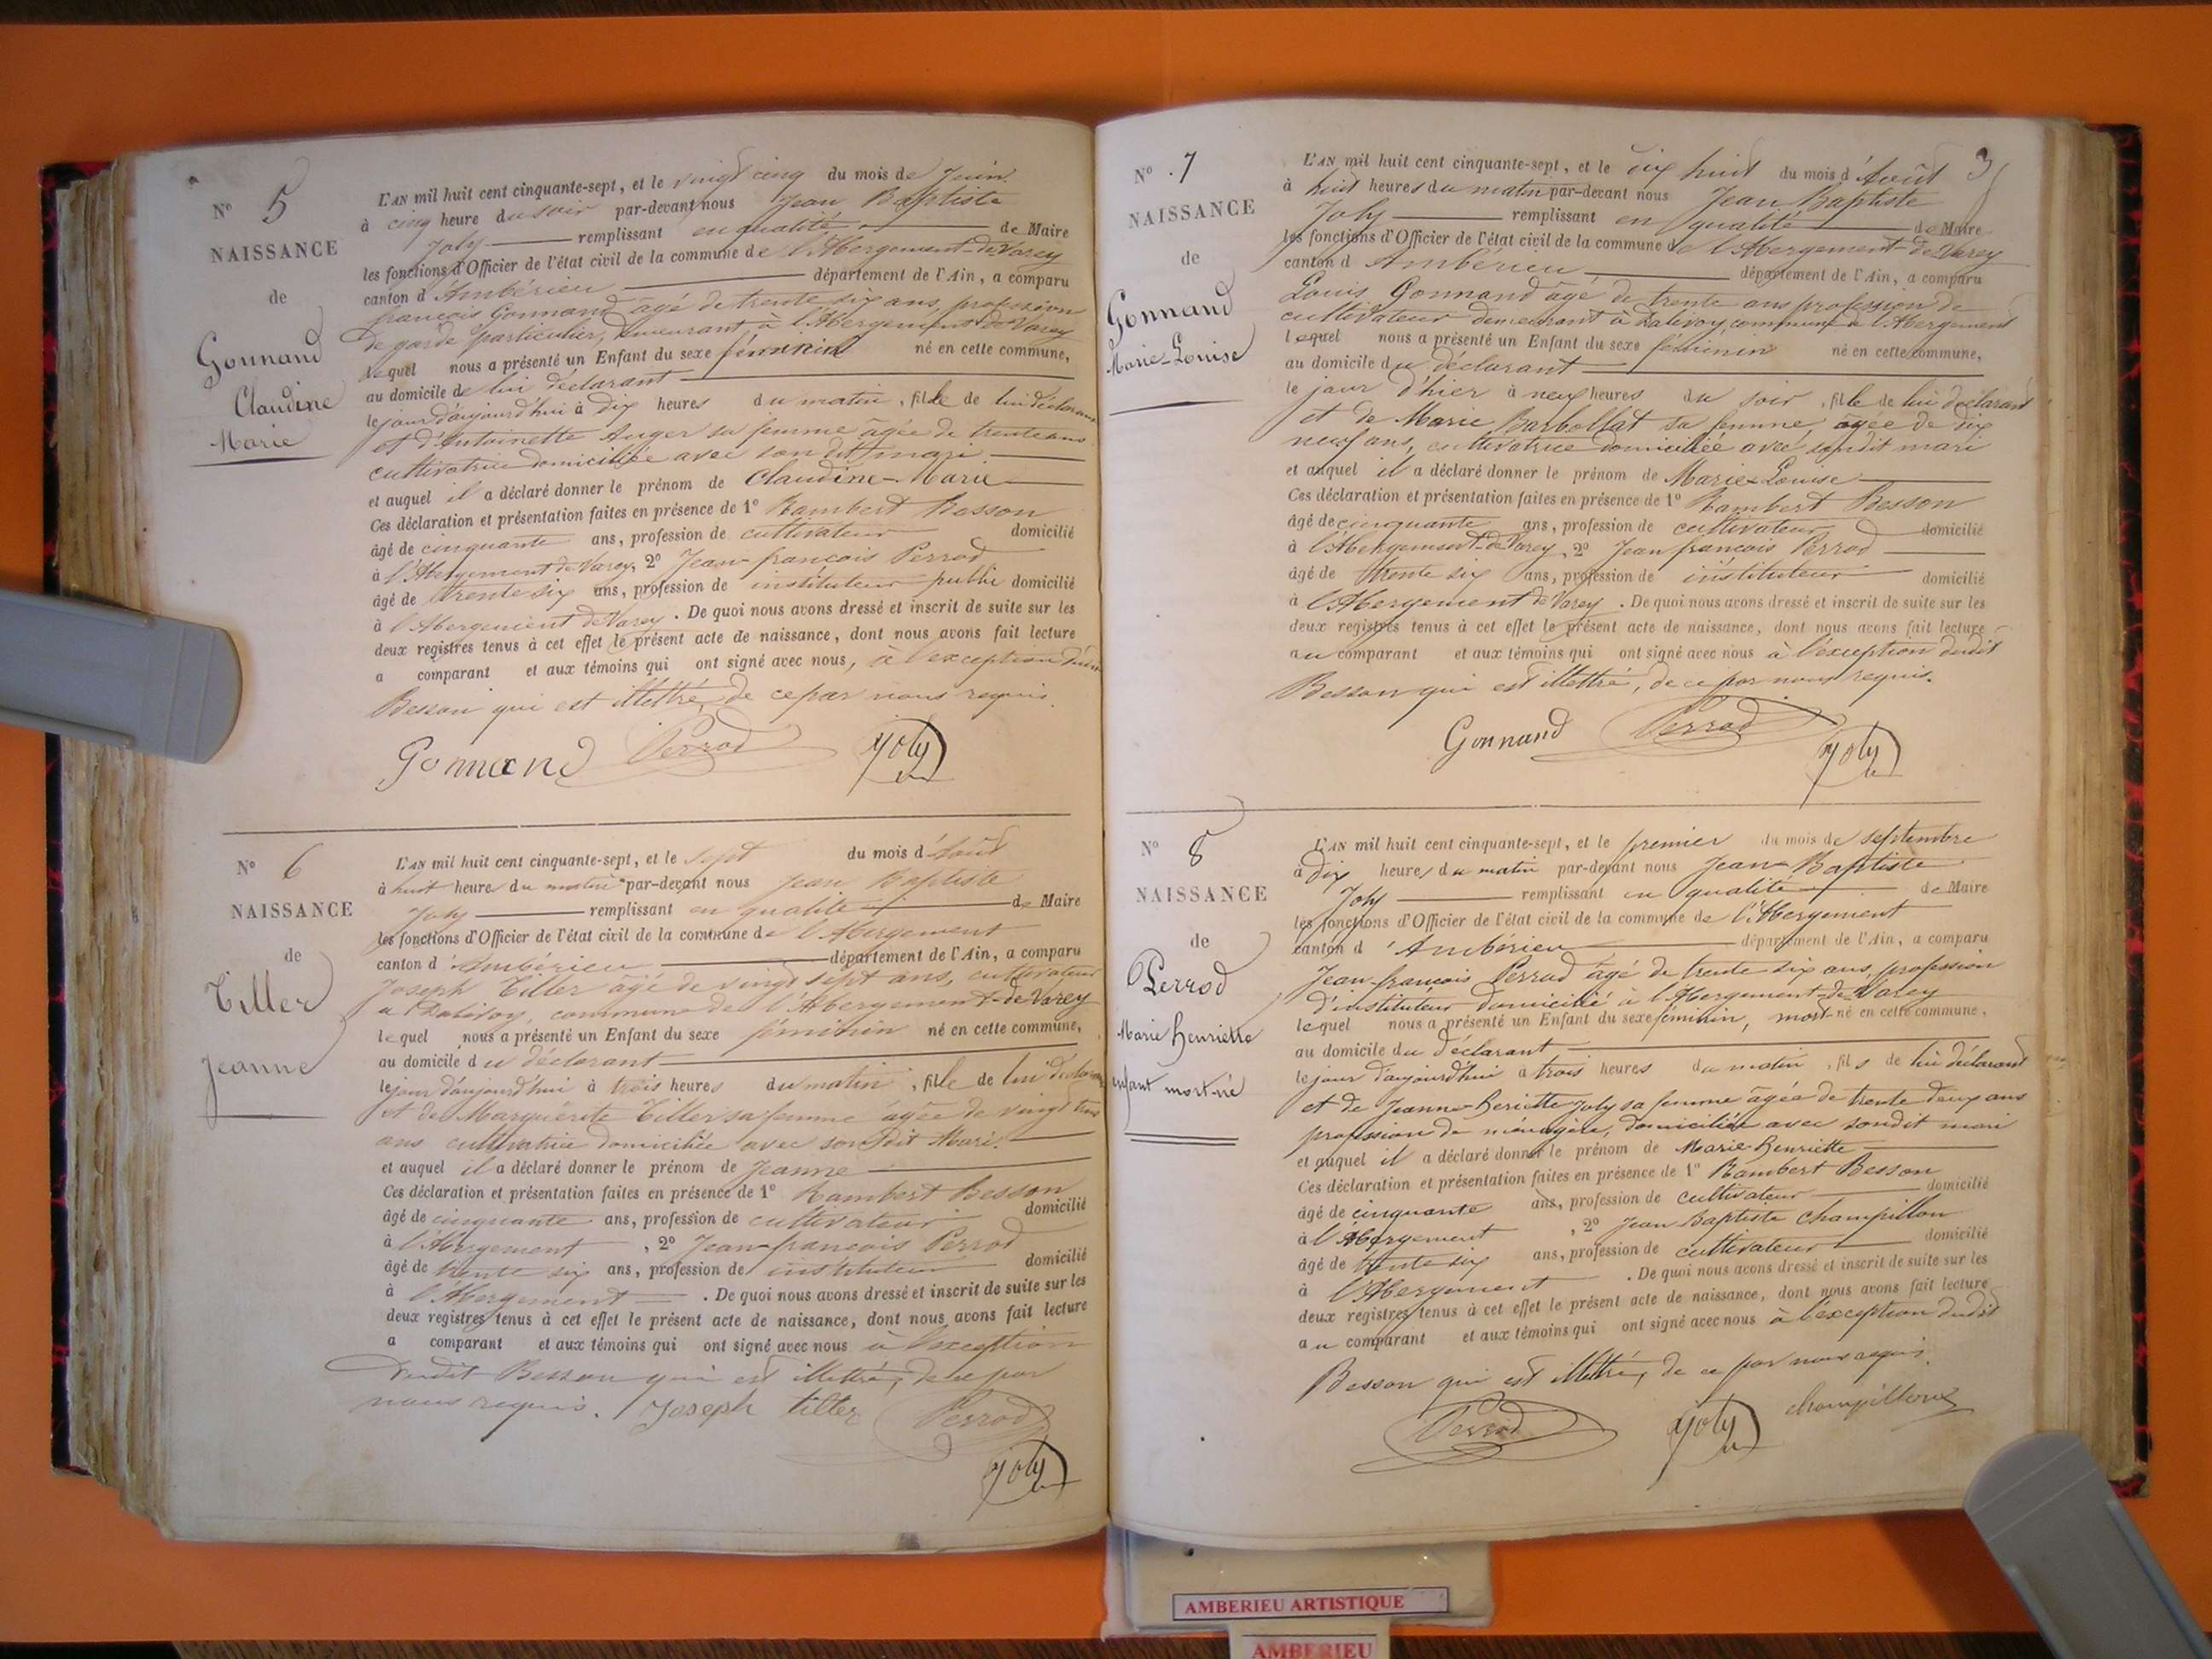 N° 5
NAISSANCE
de
Gonnand
Claudine
Marie
L'AN mil huit cent cinquante-sept, et le vingt cinq du mois de Juin
à cinq heure du soir par-devant nous Jean Baptiste
Joly remplissant en qualité de Maire
les fonctions d'Officier de l'état civil de la commune de l'Abergement-de-Varey
canton d'Ambérieu département de l'Ain, a comparu
françois Gonnand âgé de trente six ans, profession
de garde particulier, demeurant à l'Abergement de Varey
lequel nous a présenté un Enfant du sexe féminin né en cette commune,
au domicile de lui déclarant
le jour d'aujourd'hui à dix heures du matin, fille de lui déclarant
et d'Antoinette Auger sa femme âgée de trente ans
cultivatrice domiciliée avec son dit mari.
et auquel il a déclaré donner le prénom de Claudine-Marie
Ces déclaration et présentation faites en présence de 1° Rambert Besson
âgé de cinquante ans, profession de cultivateur domicilié
à l'Abergement de Varey, 2° Jean-françois Perrod
âgé de trente six ans, profession de instituteur public domicilié
à l'Abergement de Varey. De quoi nous avons dressé et inscrit de suite sur les
deux registres tenus à cet effet le présent acte de naissance, dont nous avons fait lecture
a comparant et aux témoins qui ont signé avec nous, à l'exception dudit
Besson qui est illettré, de ce par nous requis.
Gonnand Perrod Joly
N° 6
NAISSANCE
de
Tiller
Jeanne
L'AN mil huit cent cinquante-sept, et le sept du mois d'août
à huit heure du matin par-devant nous Jean Baptiste
Joly remplissant en qualité de Maire
les fonctions d'Officier de l'état civil de la commune de l'Abergement
canton d'Ambérieu département de l'Ain, a comparu
Joseph Tiller âgé de vingt sept ans, cultivateur
a commune de l'Abergement-de-Varey
lequel nous a présenté un Enfant du sexe féminin né en cette commune,
au domicile du déclarant
le jour d'aujourd'hui à trois heures du matin, fille de lui déclarant
et de Marguerite Tiller sa femme agée de vingt
ans cultivatrice domiciliée avec son dit Mari.
et auquel il a déclaré donner le prénom de Jeanne
Ces déclaration et présentation faites en présence de 1° Rambert Besson
âgé de cinquante ans, profession de cultivateur domicilié
à l'Abergement, 2° Jean-françois Perrod
âgé de trente six ans, profession de instituteur domicilié
à l'Abergement. De quoi nous avons dressé et inscrit de suite sur les
deux registres tenus à cet effet le présent acte de naissance, dont nous avons fait lecture
a comparant et aux témoins qui ont signé avec nous à l'exception
dudit Besson qui est illettré, de ce par
nous requis. Joseph tiller Perrod
Joly
3
N° 7
NAISSANCE
de
Gonnand
Marie-Louise
L'AN mil huit cent cinquante-sept, et le dix huit du mois d'Août
à huit heures du matin par-devant nous Jean Baptiste
Joly remplissant en qualité de Maire
les fonctions d'Officier de l'état civil de la commune de l'Abergement-de-Varey
canton d Ambérieu département de l'Ain, a comparu
Louis Gonnand âgé de trente ans profession de
cultivateur demeurant à commune de l'Abergement
lequel nous a présenté un Enfant du sexe féminin né en cette commune,
au domicile du déclarant
le jour d'hier à neuf heures du soir, fille de lui déclarant
et de Marie Barbollat sa femme, âgée de dix
neuf ans, cultivatrice domiciliée avec sondit mari
et auquel il a déclaré donner le prénom de Marie-Louise
Ces déclaration et présentation faites en présence de 1° Rambert Besson
âgé de cinquante ans, profession de cultivateur domicilié
à l'Abergement-de-Varey, 2° Jean françois Perrod
âgé de trente six ans, profession de instituteur domicilié
à l'Abergement de Varey. De quoi nous avons dressé et inscrit de suite sur les
deux registres tenus à cet effet le présent acte de naissance, dont nous avons fait lecture
au comparant et aux témoins qui ont signé avec nous à l'exception dudit
Besson qui est illettré, de ce par nous requis.
Gonnand Perrod Joly
N° 8
NAISSANCE
de
Perrod
Marie henriette
enfant mort-né
L'AN mil huit cent cinquante-sept, et le premier du mois de septembre
à dix heures du matin par-devant nous Jean-Baptiste
Joly remplissant en qualité de Maire
les fonctions d'Officier de l'état civil de la commune de l'Abergement
canton d'Ambérieu département de l'Ain, a comparu
Jean-françois Perrod âgé de trente six ans, profession
d'instituteur domicilié à l'Abergement-de-Varey
lequel nous a présenté un Enfant du sexe féminin, mort-né en cette commune,
au domicile du déclarant
le jour d'aujourd'hui a trois heures du matin, fils de lui déclarant
et de Jeanne-heriette Joly sa femme âgée de trente deux ans
profession de ménagère, domiciliée avec sondit mari
et auquel il a déclaré donner le prénom de Marie-henriette
Ces déclaration et présentation faites en présence de 1° Rambert Besson
âgé de cinquante ans, profession de cultivateur domicilié
à l'Abergement, 2° Jean Baptiste champillon
âgé de trente six ans, profession de cultivateur domicilié
à l'Abergement. De quoi nous avons dressé et inscrit de suite sur les
deux registres tenus à cet effet le présent acte de naissance, dont nous avons fait lecture
au comparant et aux témoins qui ont signé avec nous à l'exception dudit
Besson qui est illettré, de ce par nous requis.
Perrod Joly champillon
AMBERIEU ARTISTIQUE
AMBERIEU